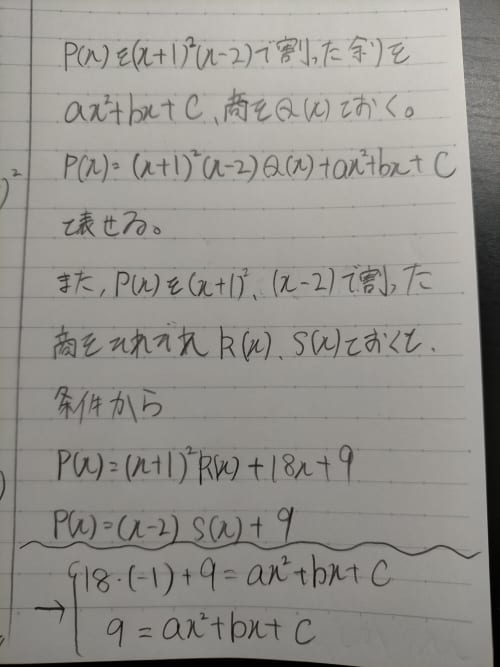 P(x)を(x+1)²(x-2)で割った余りを
ax²+bx+C、商をQ(x)ておく。
P(x)=(x+1)²(x-2)Q(x)+ax²+bx+C
で表せる。
また,P(x)を(x+1)²、(x-2)で割った
商をそれぞれR(x)、S(x)ておくと、
条件から
P(x)=(x+1)²R(x)+18x+9
P(x)=(x-2)S(x)+9
→{18・(-1)+9=ax²+bx+C
9=ax²+bx+C
)²
)